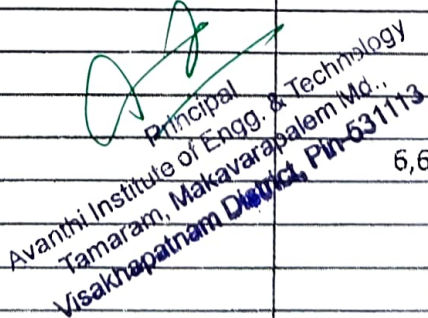 Principal
Avanthi Institute of Engg. & Technology
Tamaram, Makavarapalem Md.,
Visakhapatnam District, Pin-531113
6,6